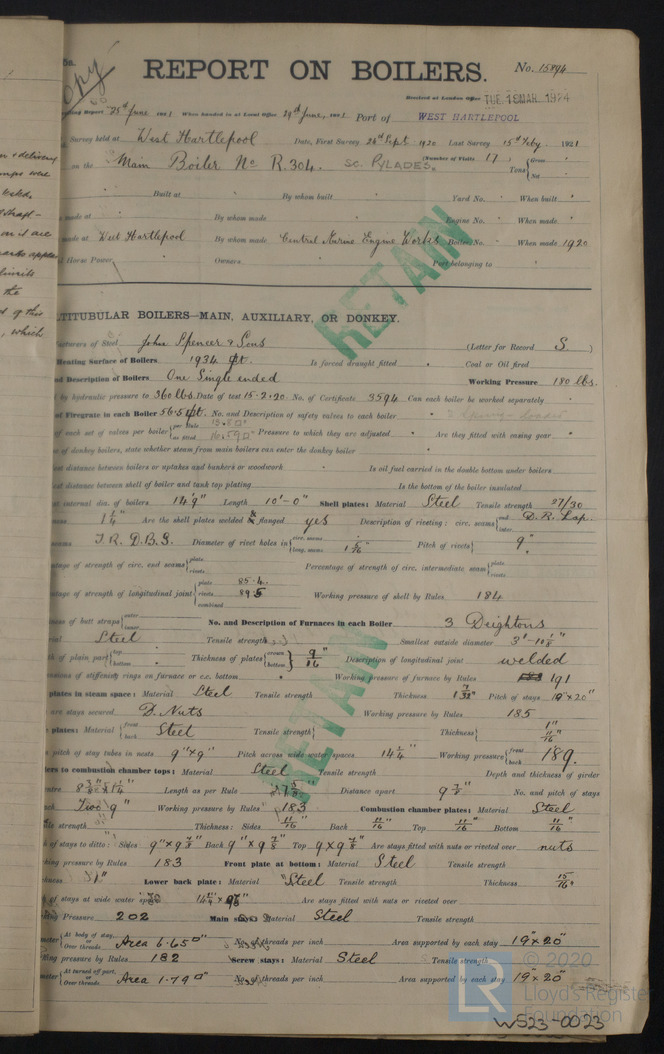 Copy
REPORT ON BOILERS. No. 15894
Received at London Office TUE. 18 MAR. 1924
Report 25th June 1921 When handed in at Local Office 29th June, 1921 Port of WEST HARTLEPOOL
Survey held at West Hartlepool Date, First Survey 28th Sept 1920 Last Survey 15th Feby. 1921
on the Main Boiler No R.304. SC. PYLADES. (Number of Visits 17 ) Tons { Gross Net
Built at By whom built Yard No. When built
made at By whom made Engine No. When made
made at West Hartlepool By whom made Central Marine Engine Works Boiler No. When made 1920
Horse Power Owners Port belonging to
RETAIN
MULTITUBULAR BOILERS—MAIN, AUXILIARY, OR DONKEY.
of Steel John Spencer & Sons (Letter for Record S. )
Heating Surface of Boilers 1934 Is forced draught fitted Coal or Oil fired
and Description of Boilers One Single ended Working Pressure 180 lbs.
by hydraulic pressure to 360 lbs. Date of test 15.2.20 No. of Certificate 3594 Can each boiler be worked separately
of Firegrate in each Boiler 56.5 No. and Description of safety valves to each boiler
of each set of valves per boiler { per Rule as fitted Pressure to which they are adjusted Are they fitted with easing gear
of donkey boilers, state whether steam from main boilers can enter the donkey boiler
distance between boilers or uptakes and bunkers or woodwork Is oil fuel carried in the double bottom under boilers
distance between shell of boiler and tank top plating Is the bottom of the boiler insulated
internal dia. of boilers 14'9" Length 10'-0" Shell plates: Material Steel Tensile strength 27/30
1 1/4" Are the shell plates welded or flanged yes Description of riveting: circ. seams { end D.R. Lap. inter.
seams T.R.D.B.S. Diameter of rivet holes in { circ. seams long. seams 1 5/16" Pitch of rivets { 9"
of strength of circ. end seams { plate rivets Percentage of strength of circ. intermediate seam { plate rivets
of strength of longitudinal joint { plate 85.4. rivets 89.5 combined Working pressure of shell by Rules 184
of butt straps { outer inner No. and Description of Furnaces in each Boiler 3 Deightons
Steel Tensile strength Smallest outside diameter 3'-10 1/8"
of plain part { top bottom Thickness of plates { crown bottom } 9/16 Description of longitudinal joint welded
of stiffening rings on furnace or c.c. bottom Working pressure of furnace by Rules 191
plates in steam space: Material Steel Tensile strength Thickness 1 7/32" Pitch of stays 19"×20"
are stays secured D. Nuts Working pressure by Rules 185
RETAIN
plates: Material { front back Steel Tensile strength { Thickness { 1" 11/16"
pitch of stay tubes in nests 9"×9" Pitch across wide water spaces 14 1/4" Working pressure { front back 189.
to combustion chamber tops: Material Steel Tensile strength Depth and thickness of girder
8 3/4" × 1 1/4" Length as per Rule 27 5/8" Distance apart 9 7/8" No. and pitch of stays
Two 9" Working pressure by Rules 183 Combustion chamber plates: Material Steel
strength Thickness: Sides 11/16" Back 11/16" Top 11/16" Bottom 11/16"
of stays to ditto: Sides 9"×9 7/8" Back 9"×9 7/8" Top 9×9 7/8" Are stays fitted with nuts or riveted over nuts
pressure by Rules 183 Front plate at bottom: Material Steel Tensile strength
1" Lower back plate: Material Steel Tensile strength Thickness 15/16"
of stays at wide water space Are stays fitted with nuts or riveted over
Pressure 202 Main stays: Material Steel Tensile strength
At body of stay, or Over threads Area 6.65 No. of threads per inch Area supported by each stay 19"×20"
pressure by Rules 182 Screw stays: Material Steel Tensile strength
At turned off part, or Over threads Area 1.79 No. of threads per inch Area supported by each stay 19"×20"
LR © 2020
Lloyd's Register
Foundation
WS23-0023